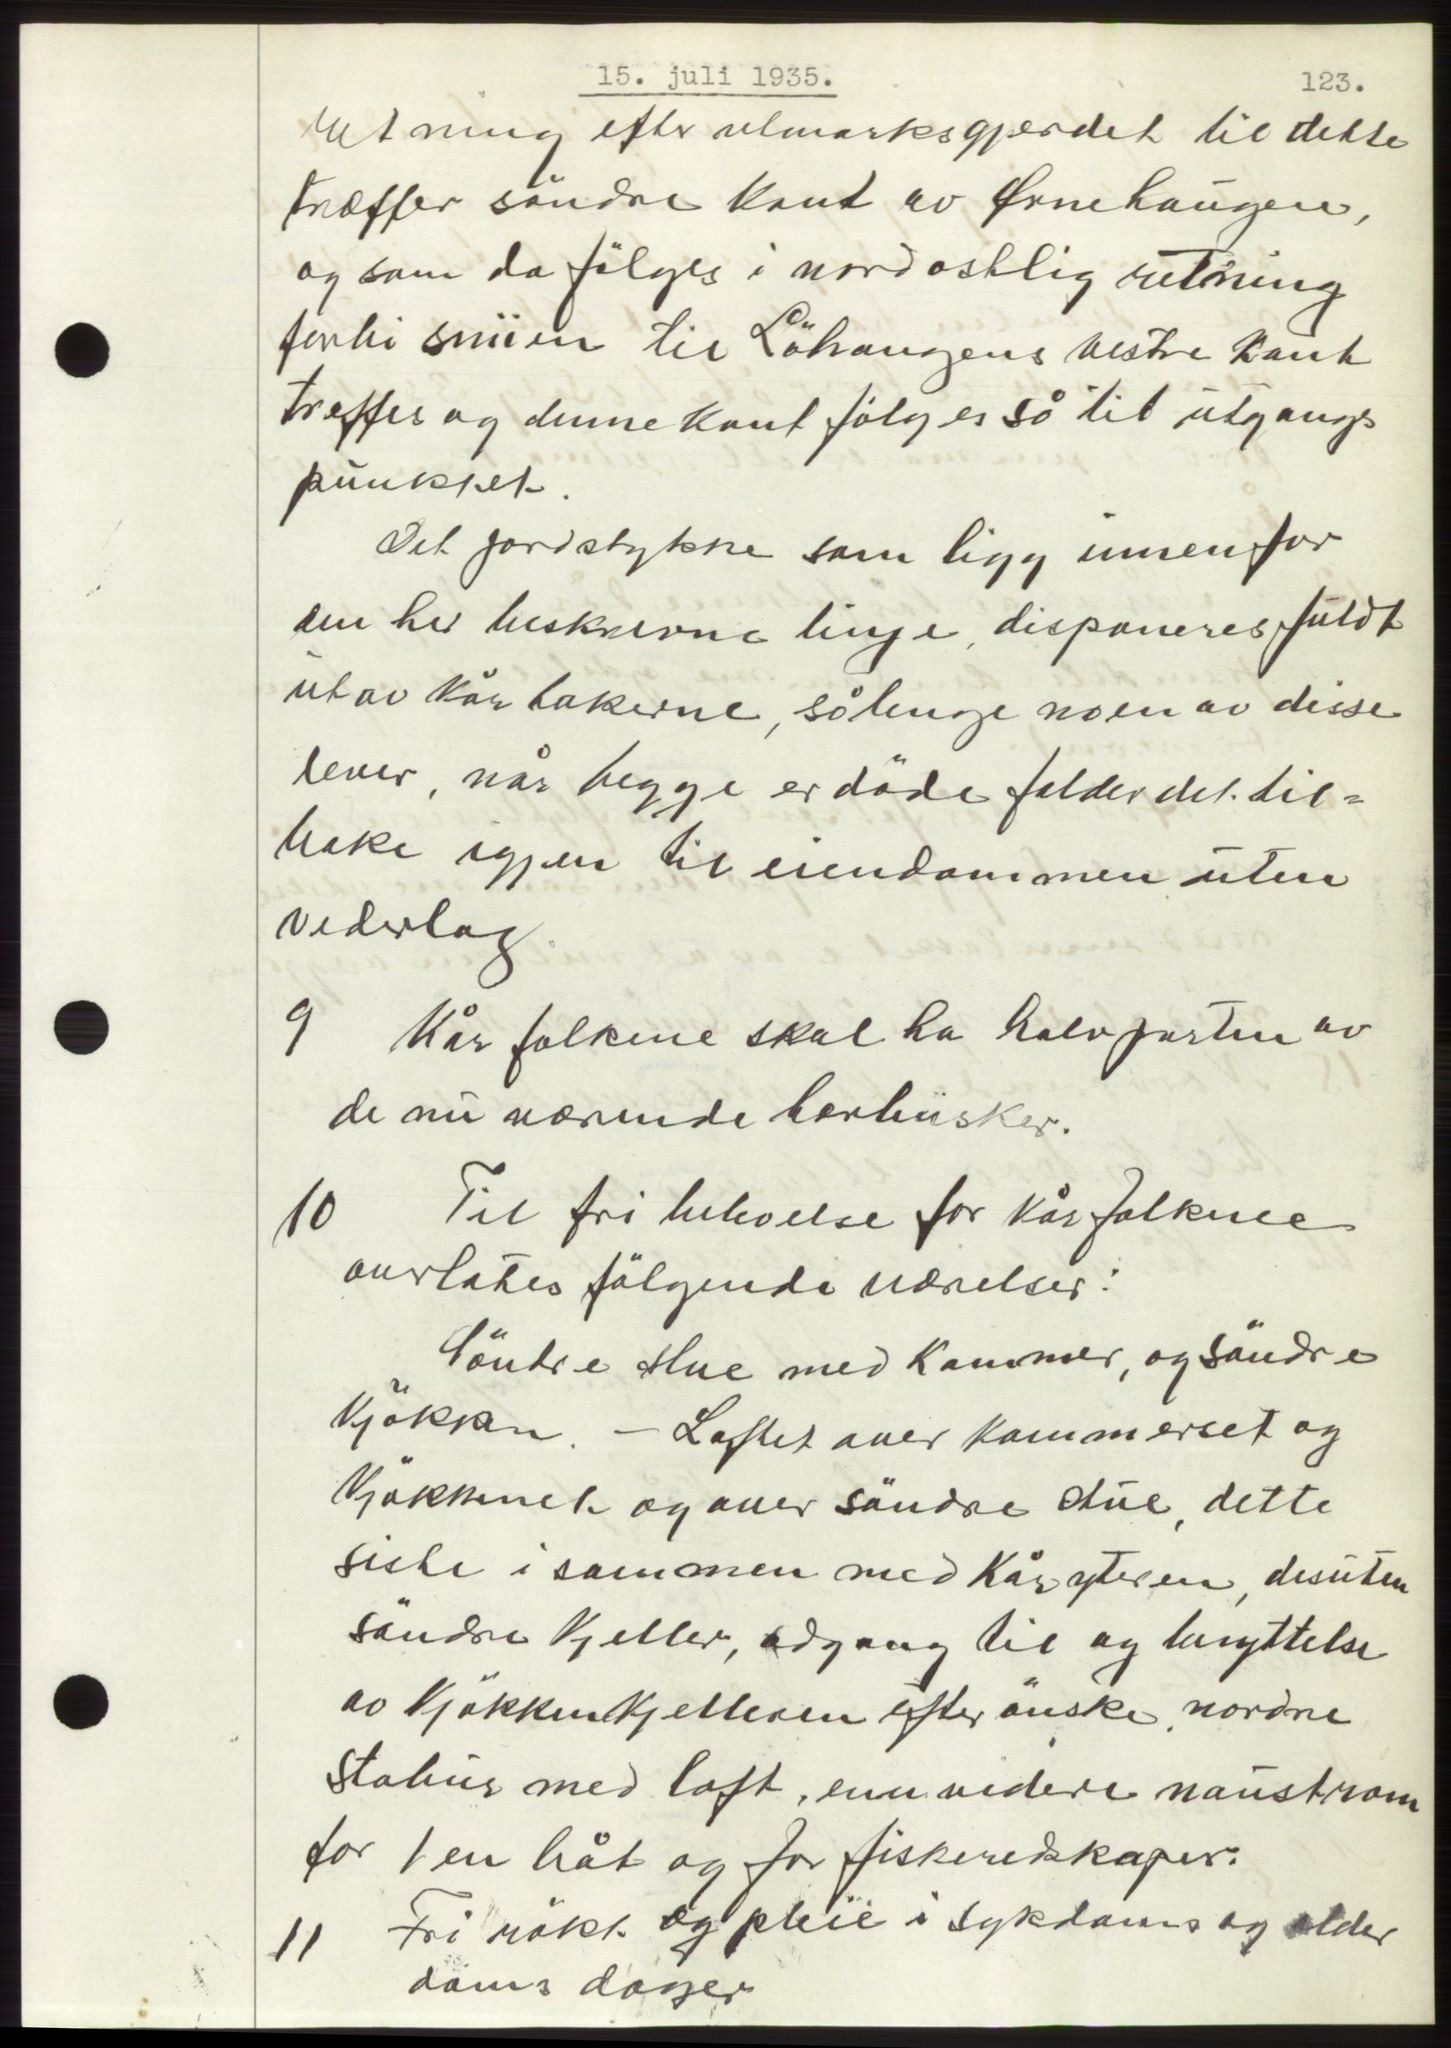 15. juli 1935.
123.
retning efter utmarksgjerdet til dette
træffer söndre kant av Ørnehaugen,
og som da fölges i nordostlig retning
forbi smien til Löhaugens vestre kant
treffes og denne kant fölges så til utgangs
punktet.
Det jordstykke som ligg innenfor
den her beskrevne linje, disponeres fuldt
ut av kårtakerne, sålenge noen av disse
lever, når begge er döde falder det til=
bake igjen til eiendommen uten
vederlag.
9 Kårfolkene skal ha halvparten av
de nu værende bærbusker.
10 Til fri beboelse for kårfolkene
overlates fölgende værelser:
Söndre stue med kammer, og söndre
kjökken. – Loftet over kammerset og
kjökkenet og over söndre stue, dette
siste i sammen med kåryteren, desuten
söndre kjeller, adgang til og benyttelse
av kjökkenkjelleren efter önske, nordre
stabur med loft, enn videre naustrom
for 1 en båt og for fiskeredskaper.
11 Fri rökt og pleie i sykdoms og alder
doms dager